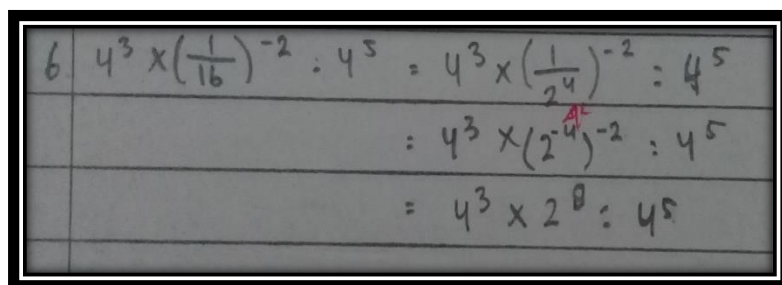 6 4³ × (1/16)⁻² : 4⁵ = 4³ × (1/2⁴)⁻² : 4⁵
= 4³ × (2⁻⁴)⁻² : 4⁵
= 4³ × 2⁸ : 4⁵